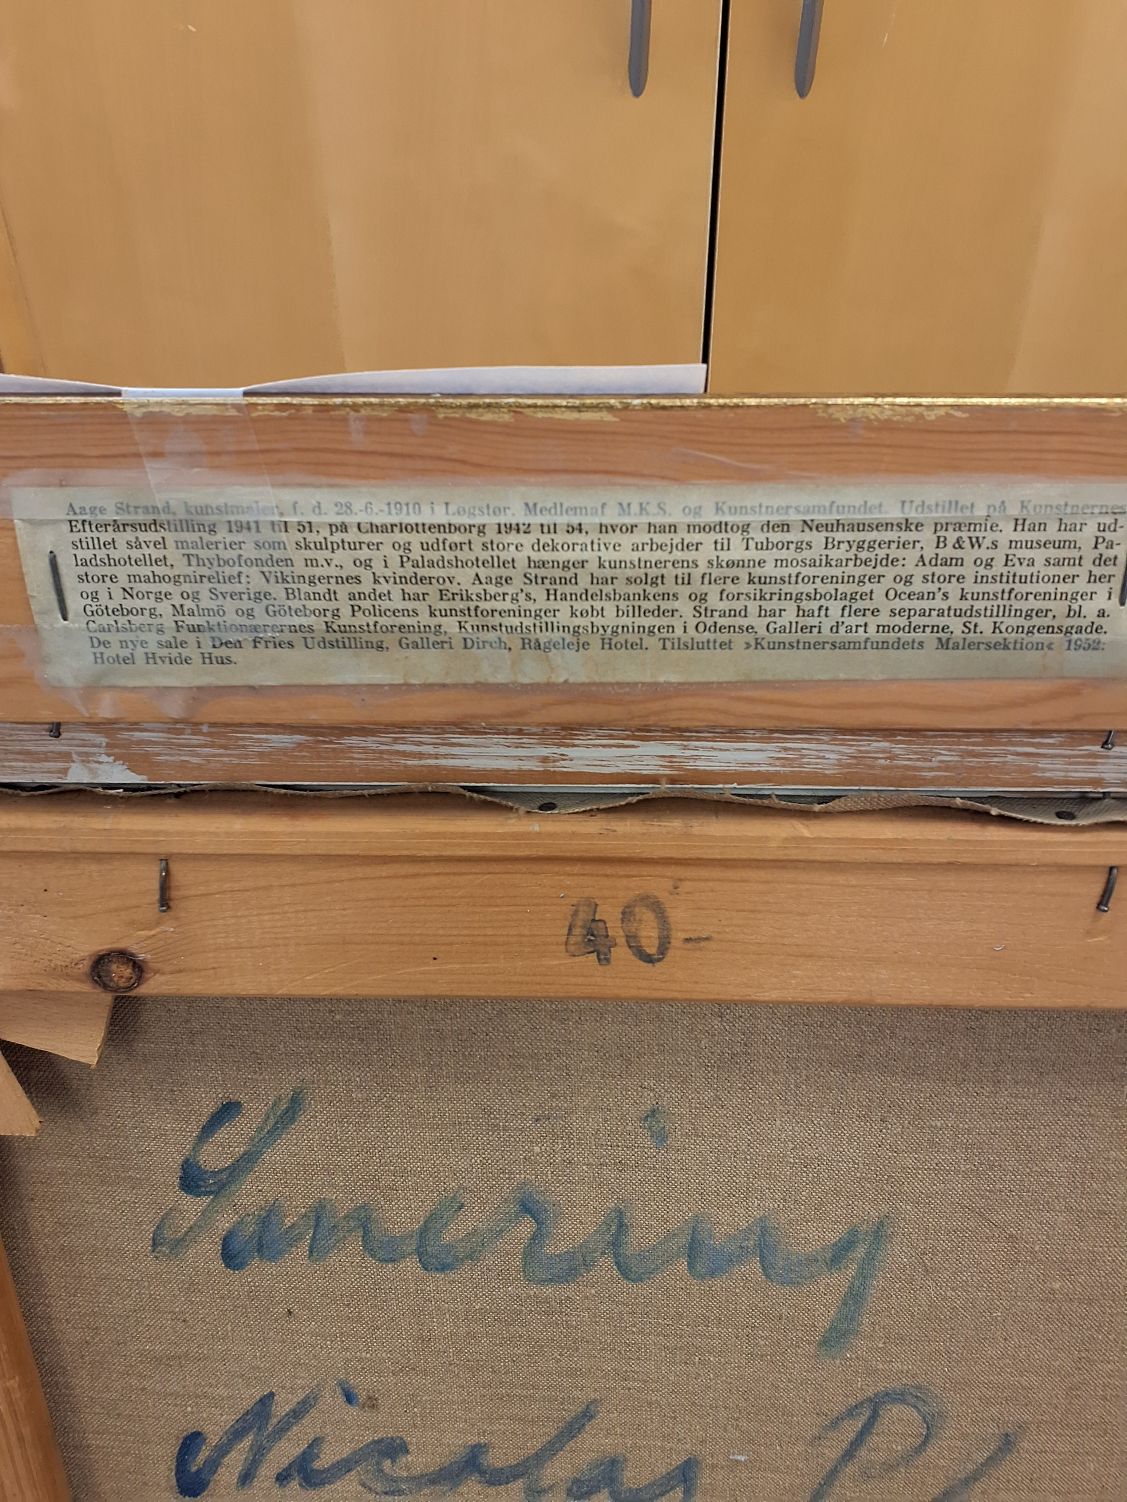 Aage Strand, kunstmaler, f. d. 28.-6.-1910 i Løgstør. Medlemaf M.K.S. og Kunstnersamfundet. Udstillet på Kunstnernes
Efterårsudstilling 1941 til 51, på Charlottenborg 1942 til 54, hvor han modtog den Neuhausenske præmie. Han har ud-
stillet såvel malerier som skulpturer og udført store dekorative arbejder til Tuborgs Bryggerier, B &W.s museum, Pa-
ladshotellet, Thybofonden m.v., og i Paladshotellet hænger kunstnerens skønne mosaikarbejde: Adam og Eva samt det
store mahognirelief: Vikingernes kvinderov. Aage Strand har solgt til flere kunstforeninger og store institutioner her
og i Norge og Sverige. Blandt andet har Eriksberg's, Handelsbankens og forsikringsbolaget Ocean's kunstforeninger i
Göteborg, Malmö og Göteborg Policens kunstforeninger købt billeder. Strand har haft flere separatudstillinger, bl. a.
Carlsberg Funktionærernes Kunstforening, Kunstudstillingsbygningen i Odense. Galleri d'art moderne, St. Kongensgade.
De nye sale i Den Fries Udstilling, Galleri Dirch, Rågeleje Hotel. Tilsluttet »Kunstnersamfundets Malersektion« 1952.
Hotel Hvide Hus.
40-
Sanering
Nicolas Pl